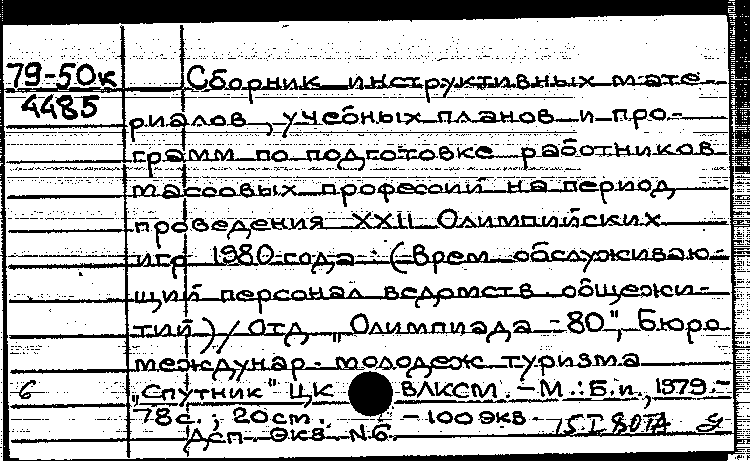 79-50к Сборник инструктивных мате-
4485 риалов, учебных планов и про-
грамм по подготовке работников
массовых профессий на период
проведения XXII Олимпийских
игр 1980 года : (Врем. обслуживаю-
щий персонал ведомств. общежи-
тий) / Отд. „Олимпиада-80", Бюро
междунар. молодеж туризма
6 „Спутник" ЦК ВЛКСМ. - М. : Б.и., 1979.-
78 с. ; 20 см. - 100 экз.
Экз. N 6.